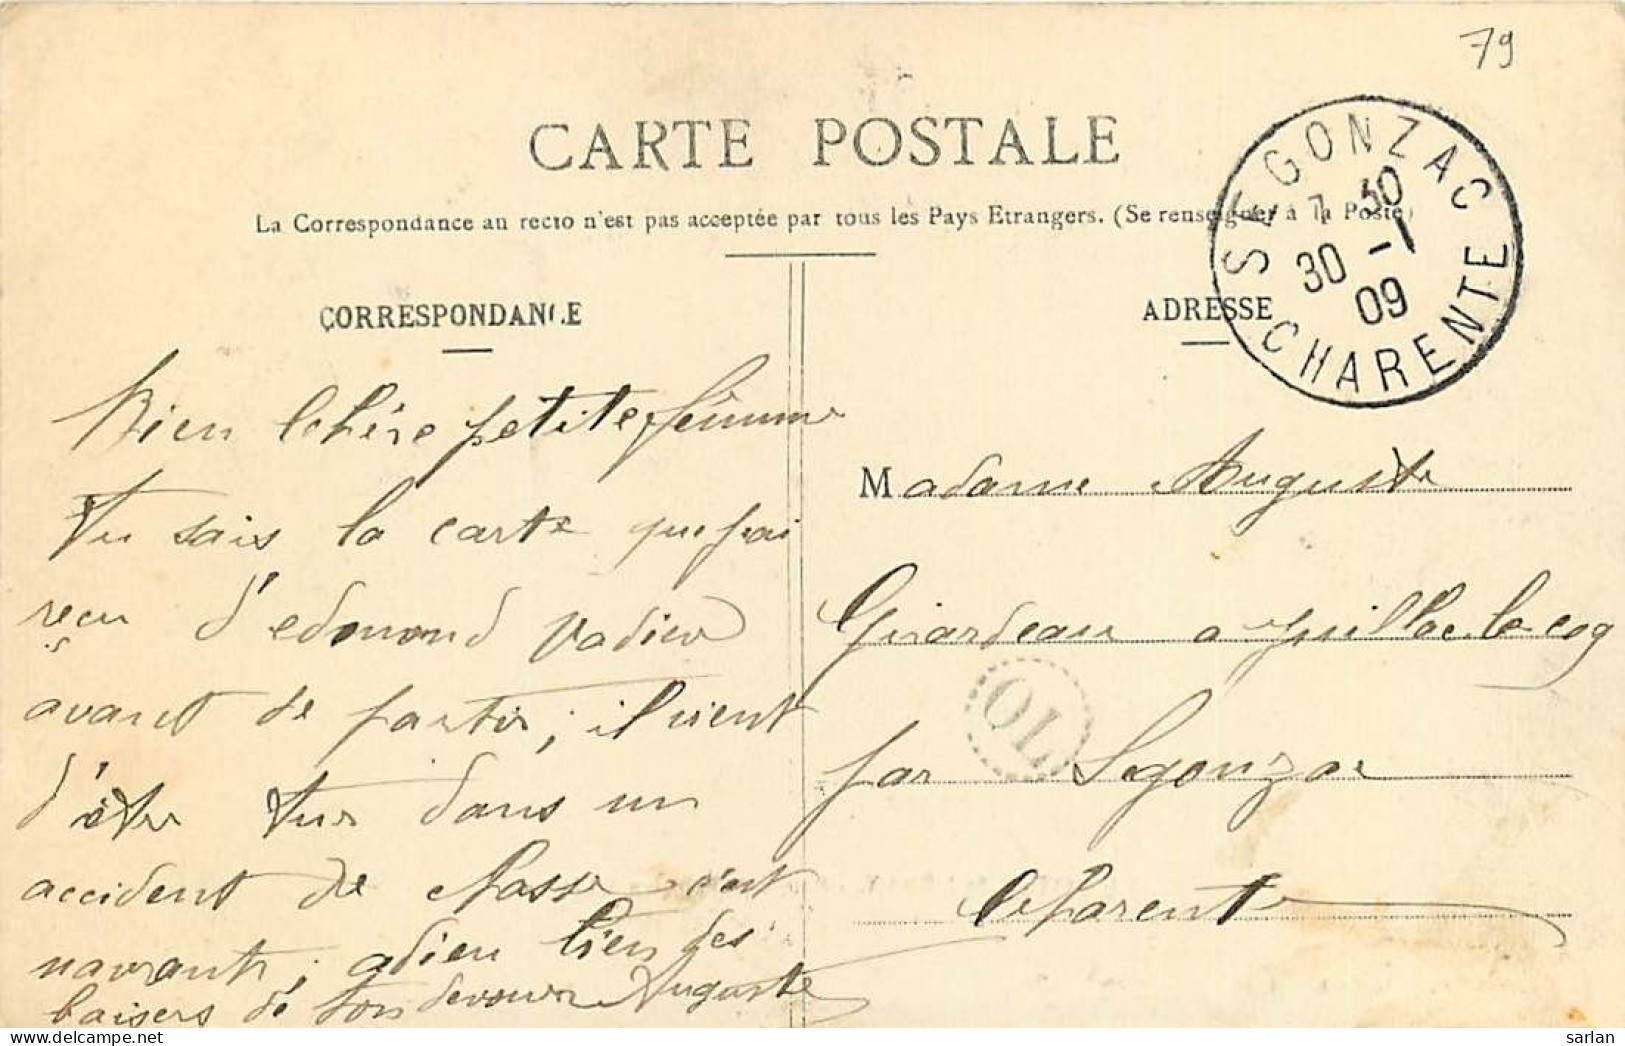 79
CARTE POSTALE
La Correspondance au recto n'est pas acceptée par tous les Pays Etrangers. (Se renseigner à la Poste)
SEGONZAC
7 30
30 -1
09
CHARENTE
CORRESPONDANCE
ADRESSE
Bien Chère petite femme
Tu sais la carte que j'ai
reçu d'edmond Vadieu
avant de partir ; il vient
d'être tué dans un
accident de chasse c'est
navrant ; adieu bien des
baisers de ton devoué Auguste
Madame Auguste
Girardeau a juillac-le-coq
par Segonzac
Charente
OL
sarlan